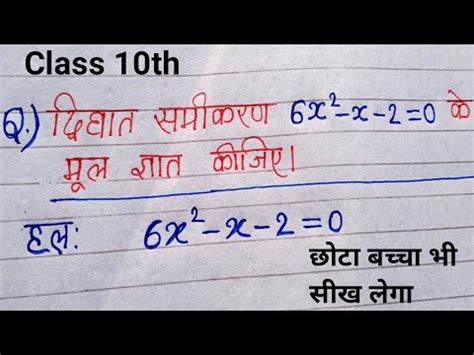 Class 10th
Q.) द्विघात समीकरण 6x²-x-2=0 के
मूल ज्ञात कीजिए।
हल: 6x²-x-2=0
छोटा बच्चा भी
सीख लेगा